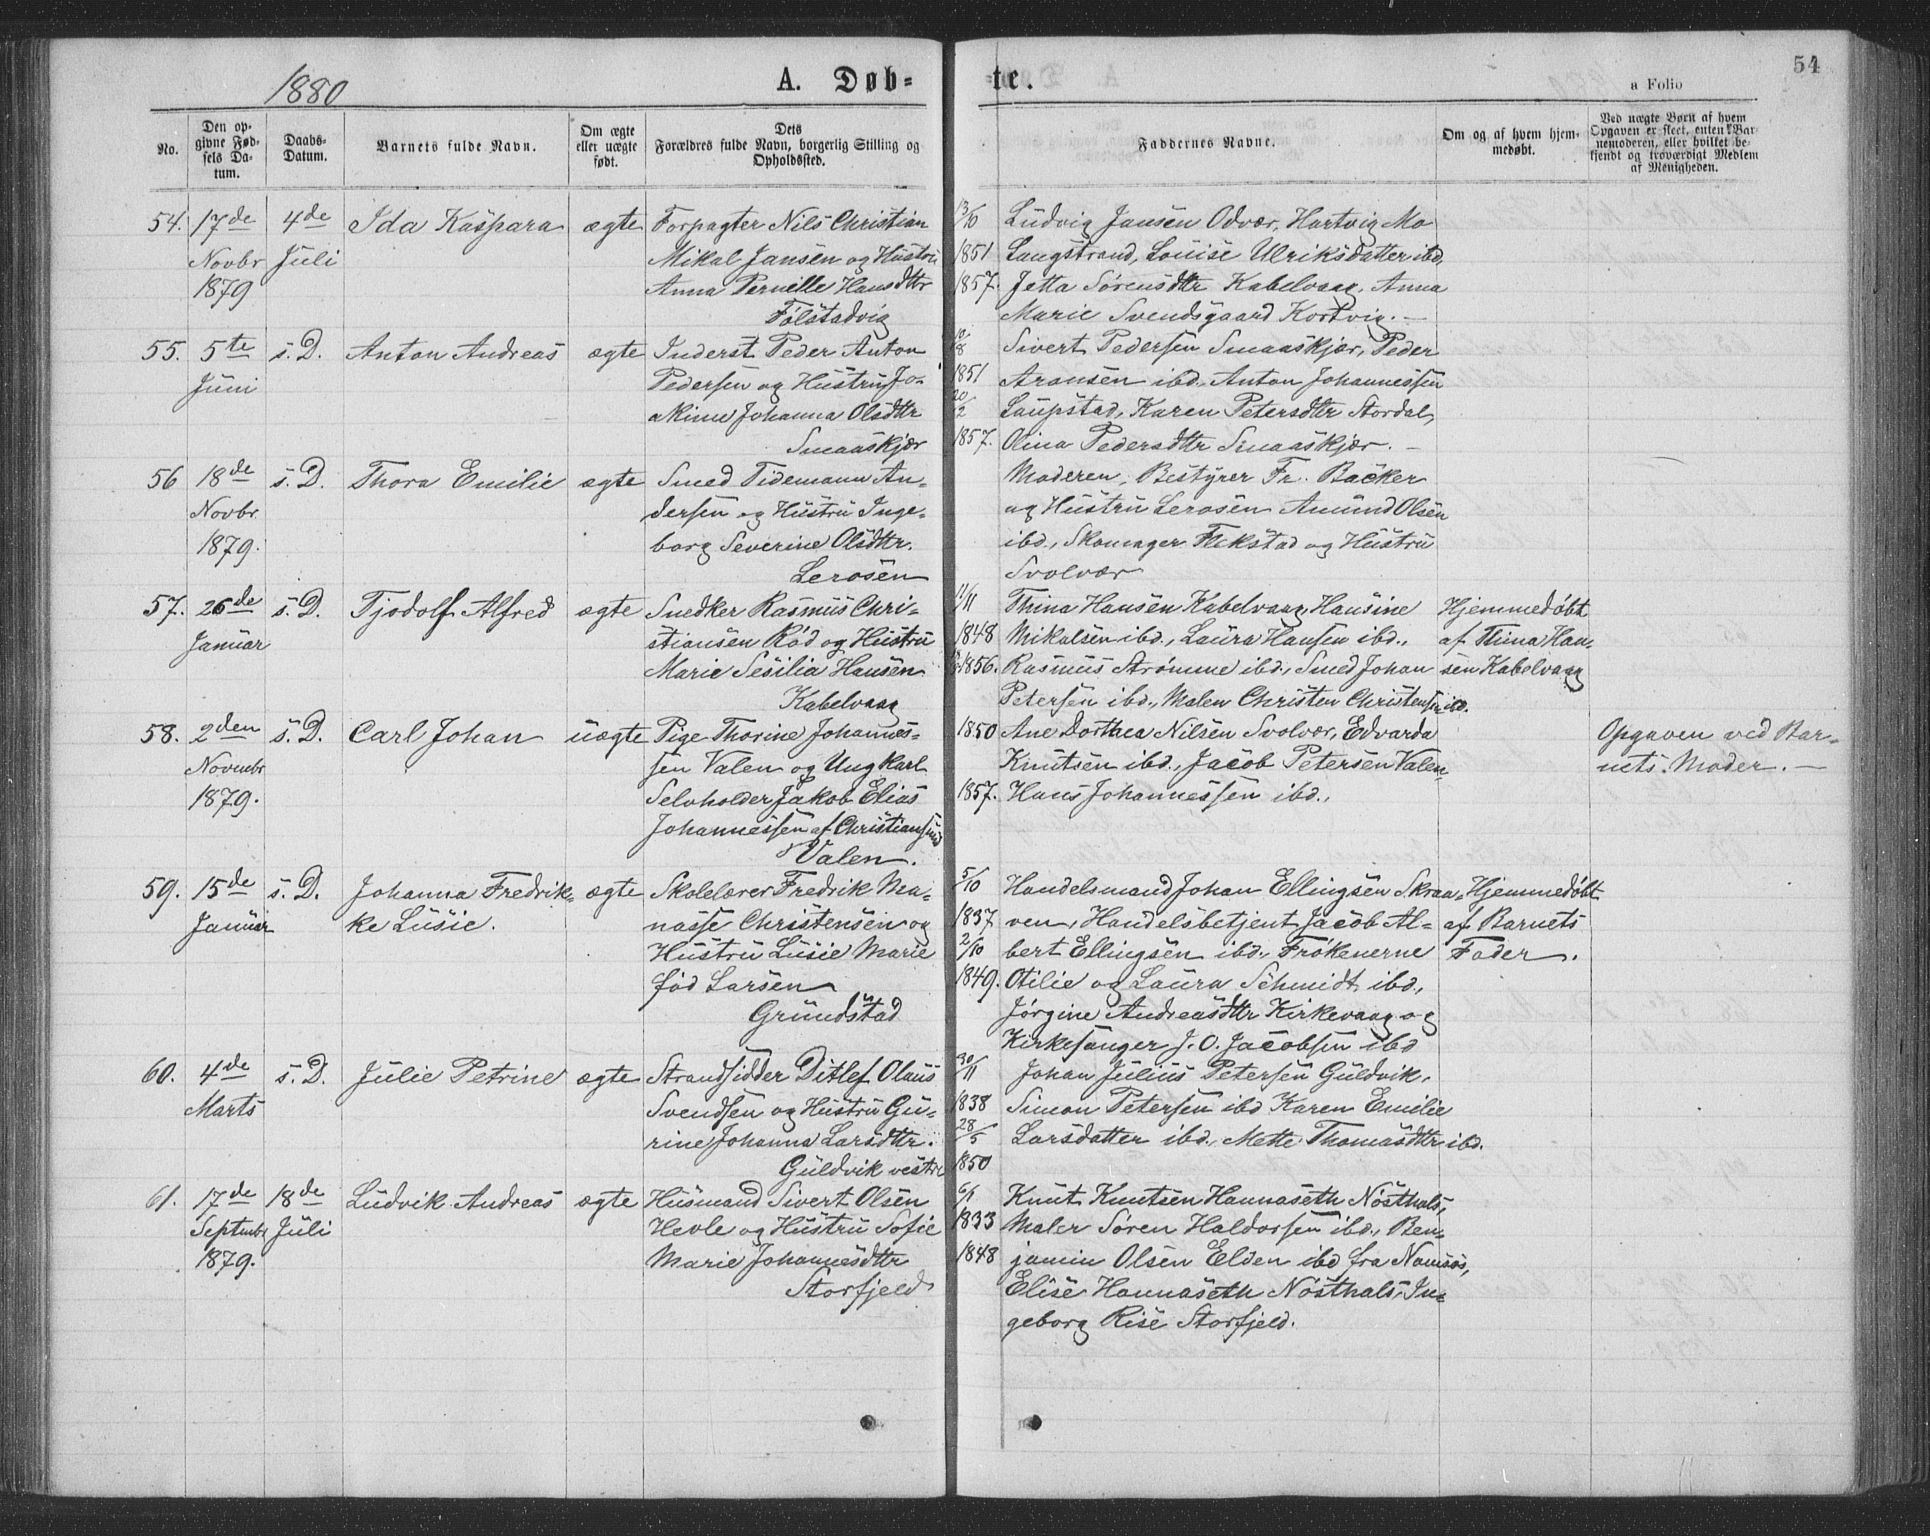 1880
A. Døb-
te.
54
a Folio
No.
Den op-
givne Fød-
sels Da-
tum.
Daabs-
Datum.
Barnets fulde Navn.
Om ægte
eller uægte
født.
Dets
Forældres fulde Navn, borgerlig Stilling og
Opholdssted.
Faddernes Navne.
Om og af hvem hjem-
medøbt.
Ved uægte Børn af hvem
Opgaven er skeet, enten Bar-
nemoderen, eller hvilket be-
kjendt og troværdigt Medlem
af Menigheden.
54. 17de 4de Ida Kaspara ægte Forpagter Nils Christian
Novbr Juli Mikal Jansen og Hustru
1879 Anna Pernille Hansdttr
Følstadvig
13/10 Ludvig Jansen Odvær, Hartvig Mo
1851 Laugstrand, Louise Ulriksdatter ibd,
1857. Jetta Sørensdttr Kabelvaag, Anna
Marie Svendsgaard Kortvig. –
55. 5te s. D. Anton Andreas ægte Inderst Peder Anton
Juni Pedersen og Hustru Jo-
akime Johanna Olsdttr
Smaaskjær
10/8 Sivert Pedersen Smaaskjær, Peder
1851 Aronsen ibd. Anton Johannessen
20/2 Laupstad, Karen Petersdttr Stordal,
1857. Olina Pedersdttr Smaaskjær. –
56 18de s. D. Thora Emilie ægte Smed Tidemann An-
Novbr dersen og Hustru Inge-
1879. borg Severine Olsdttr.
Lerosen
Moderen, Bestyrer Fr. Backer
og Hustru Lerosen Amund Olsen
ibd., Skomager Flekstad og Hustru
Svolvær
57. 26de s. D. Tjodolf Alfred ægte Snedker Rasmus Chri-
Januar stiansen Rød og Hustru
Marie Sesilia Hansen
Kabelvaag
11/11 Thina Hansen Kabelvaag, Hansine Hjemmedøbt
1848 Mikalsen ibd., Laura Hansen ibd., af Thina Han-
1856. Rasmus Strømme ibd., Smed Johan sen Kabelvaag
Petersen ibd., Malen Christen Christensen ibd.
58. 2den s. D. Carl Johan uægte Pige Thorine Johannes-
Novembr sen Valen og Ungkarl
1879. Selvholder Jakob Elias
Johannessen af Christiansund
Valen.
1850 Ane Dorthea Nilsen Svolvær, Edvarda Opgaven ved Bar-
Knutsen ibd., Jacob Petersen Valen, nets Moder. –
1857. Hans Johannessen ibd.,
59. 15de s. D. Johanna Fredrik- ægte Skolelærer Fredrik Ma-
Januar ke Lusie. nasse Christensen og
Hustru Lusie Marie
fød Larsen
Grundstad
5/10 Handelsmand Johan Ellingsen Skraa- Hjemmedøbt
1837 ven, Handelsbetjent Jacob Al- af Barnets
2/10 bert Ellingsen ibd., Frøkenerne Fader.
1849. Otilie og Laura Schmidt ibd.,
Jørgine Andreasdttr Kirkevaag og
Kirkesanger J. O. Jacobsen ibd
60. 4de s. D. Julie Petrine ægte Strandsidder Ditlef Olaus
Marts Svendsen og Hustru Gu-
rine Johanna Larsdttr.
Guldvik vestre
30/11 Johan Julius Petersen Guldvik,
1838 Simon Petersen ibd Karen Emilie
28/5 Larsdatter ibd., Mette Thomasdttr ibd.
1850
61. 17de 18de Ludvik Andreas ægte Husmand Sivert Olsen
Septmbr Juli Hevle og Hustru Sofie
1879. Marie Johannesdttr
Storfjeld
6/1 Knut Knutsen Hannaseth Nøsthals,
1833 Maler Søren Haldorsen ibd., Ben-
1848 jamin Olsen Elden ibd fra Namsos,
Elise Hannaseth Nøsthals, In-
geborg Rise Storfjeld.